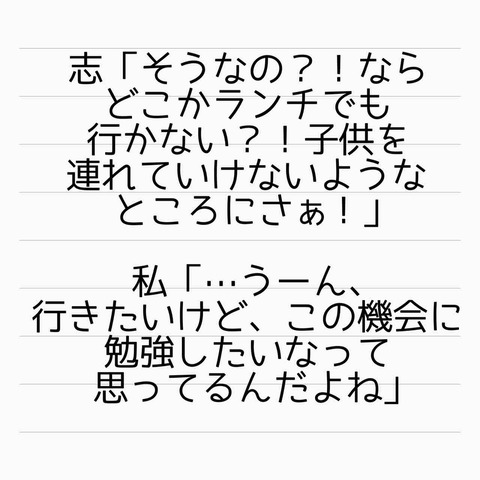 志「そうなの？！なら
どこかランチでも
行かない？！子供を
連れていけないような
ところにさぁ！」
私「…うーん、
行きたいけど、この機会に
勉強したいなって
思ってるんだよね」